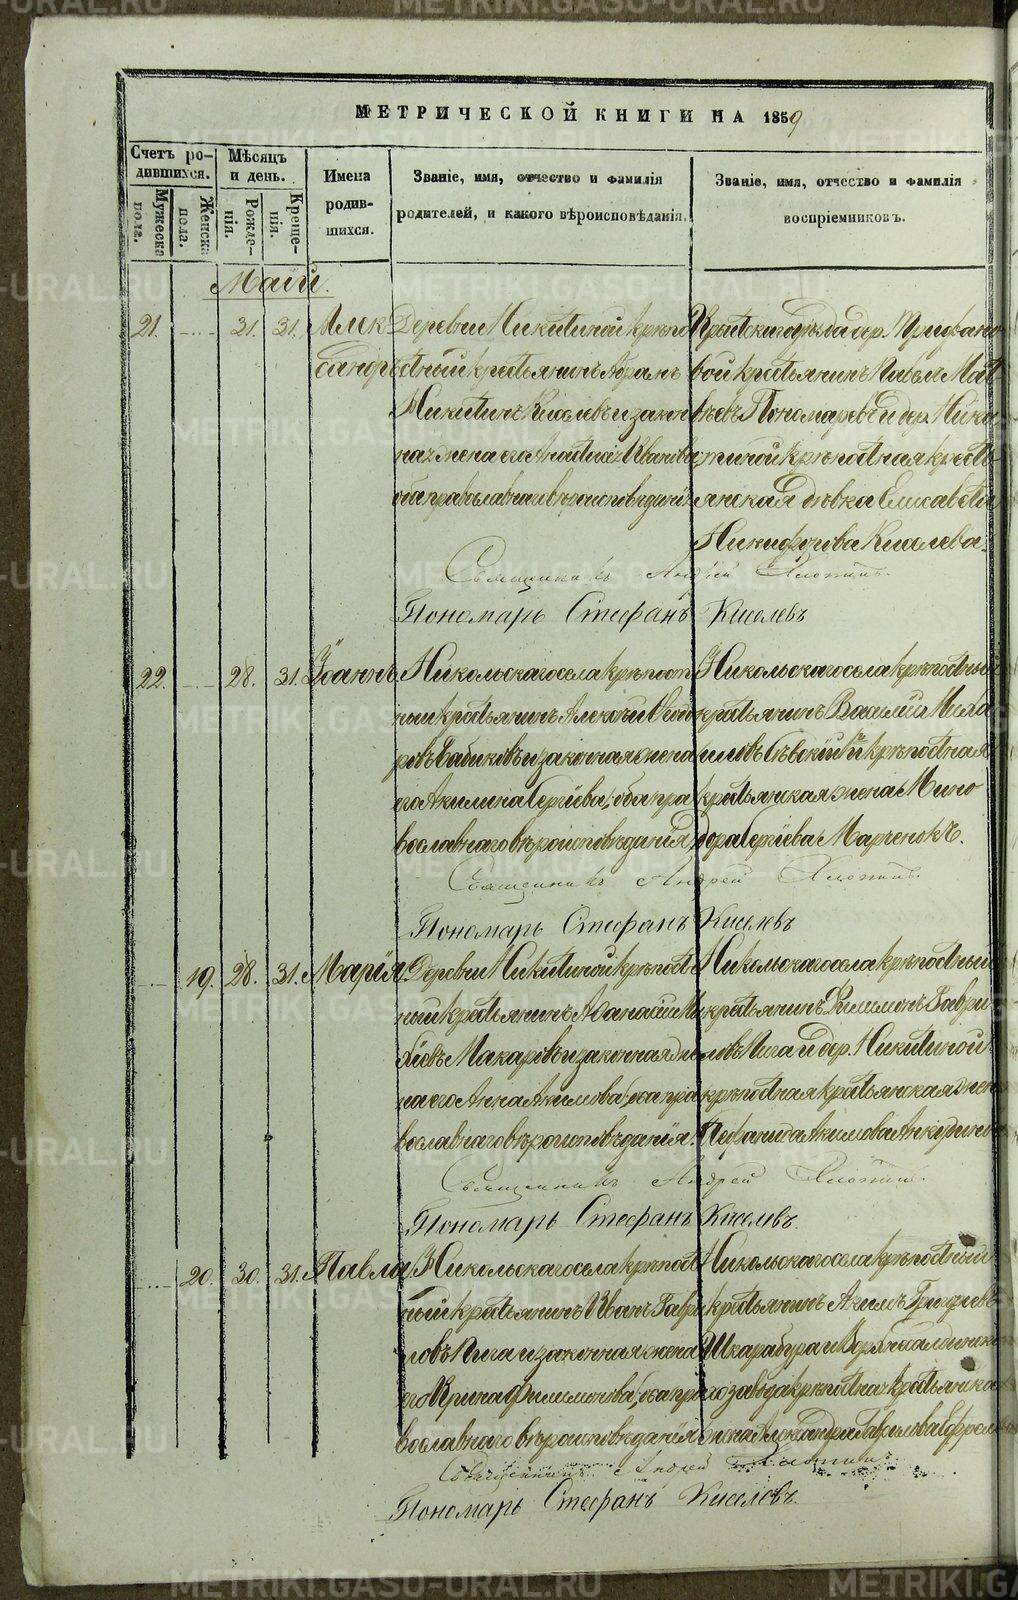 МЕТРИЧЕСКОЙ КНИГИ НА 1859
Счетъ ро-
дившихся.
Мужеска
пола.
Женска
пола.
Мѣсяцъ
и день.
Рожде-
нія.
Креще-
нія.
Имена
родив-
шихся.
Званіе, имя, отчество и фамилія
родителей, и какого вѣроисповѣданія.
Званіе, имя, отчество и фамилія
воспріемниковъ.
Маій.
21. 31. 31. Алек
сандръ
Деревни Никитиной крѣпо
стный крестьянинъ Абрамъ
Никитинъ Киселевъ и закон
ная жена его Ивановa
оба православнаго вѣроисповѣданія
дер.
вой крестьянинъ Павелъ Мат
вѣевъ Пономаревъ и дер. Ники
тиной крѣпостная кресть
янская дѣвка Елисавета
Никифорова Киселева.
Священникъ Андрей
Пономарь Стефанъ Киселевъ
22. 28. 31. Іоаннъ
Никольскаго села крѣпост
ный крестьянинъ Алексѣй
и законная жена
его Акилина Сергіева, оба пра
вославнаго вѣроисповѣданія
Никольскаго села крѣпостный
крестьянинъ Василій Миха
иловъ и крѣпостная
крестьянская жена Мино
дора Сергіева Марченокъ.
Священникъ Андрей
Пономарь Стефанъ Киселевъ
19. 28. 31. Марія
Деревни Никитиной крѣпост
ный крестьянинъ Афанасій
Макаровъ и законная же
на его Анна Акимова, оба пра
вославнаго вѣроисповѣданія.
Никольскаго села крѣпостный
крестьянинъ Филимонъ Гаври
ловъ Пига и дер. Никитиной
крѣпостная крестьянская жена
Акимова
Священникъ Андрей
Пономарь Стефанъ Киселевъ
20. 30. 31. Павла
Никольскаго села крѣпост
ный крестьянинъ Иванъ Гаври
ловъ Пига и законная жена
его Ирина Филимонова, оба пра
вославнаго вѣроисповѣданія
Никольскаго села крѣпостный
крестьянинъ Акимъ
Шкарабура и
го завода крѣпостная крестьянска
жена Александра Гаврилова
Священникъ Андрей
Пономарь Стефанъ Киселевъ
METRIKI.GASO-URAL.RU